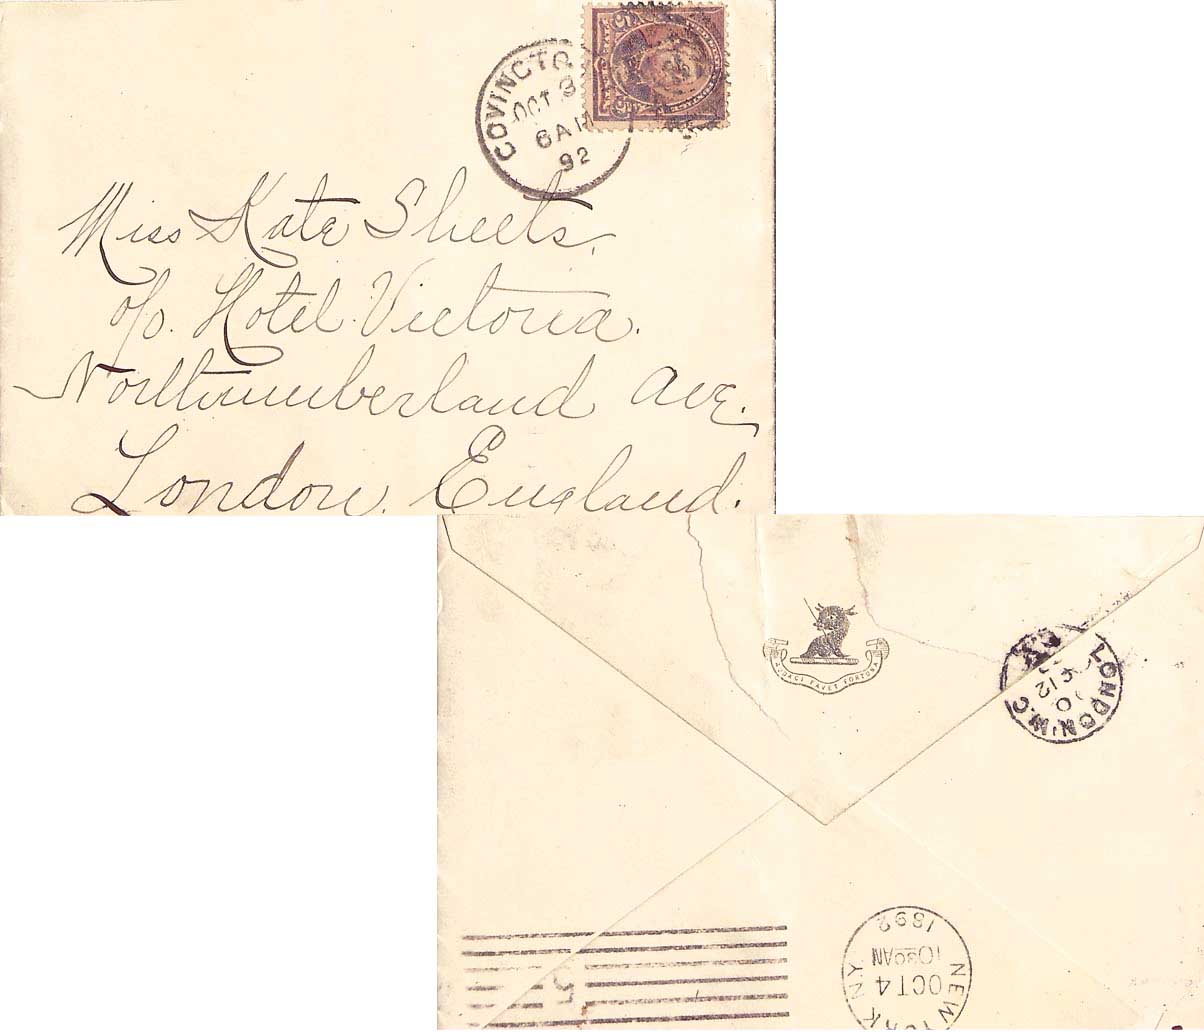 COVINGTO
OCT 3
6 AM
92
Miss Kate Sheets.
c/o. Hotel Victoria.
Northumberland Ave.
London. England.
AUDACI FAVET FORTUNA
LONDON. W.C
OC 12
NEW YORK NY
OCT 4
1030AM
1892